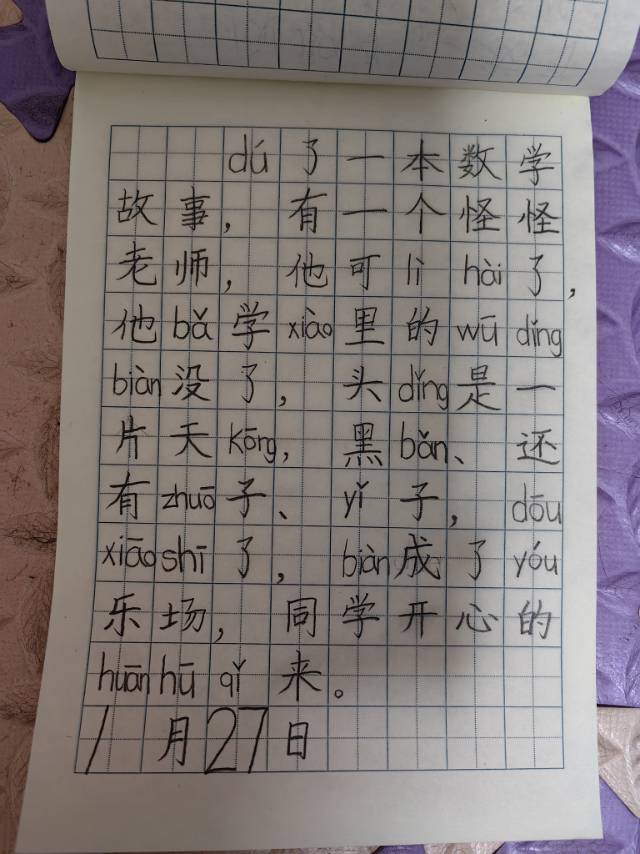 dú了一本数学
故事，有一个怪怪
老师，他可lì hài了，
他bǎ学xiào里的wū dǐng
biàn没了，头dǐng是一
片天kōng，黑bǎn、还
有zhuō子、yǐ子，dōu
xiāoshī了，biàn成了yóu
乐场，同学开心的
huānhū qǐ来。
1月27日